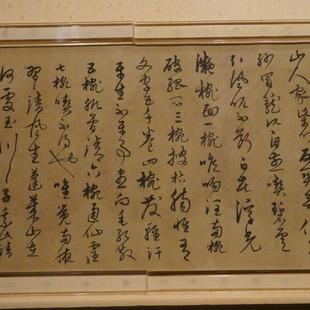 山人家柴門
紗帽籠頭自煎喫碧雲
引風吹不斷白花浮光
凝椀面一椀喉吻潤兩椀
破孤悶三椀搜枯腸惟有
文字五千卷四椀發輕汗
平生不平事盡向毛孔散
五椀肌骨清六椀通仙靈
七椀喫不得也唯覺兩腋
習習清風生蓬萊山在
何處玉川子乘此清